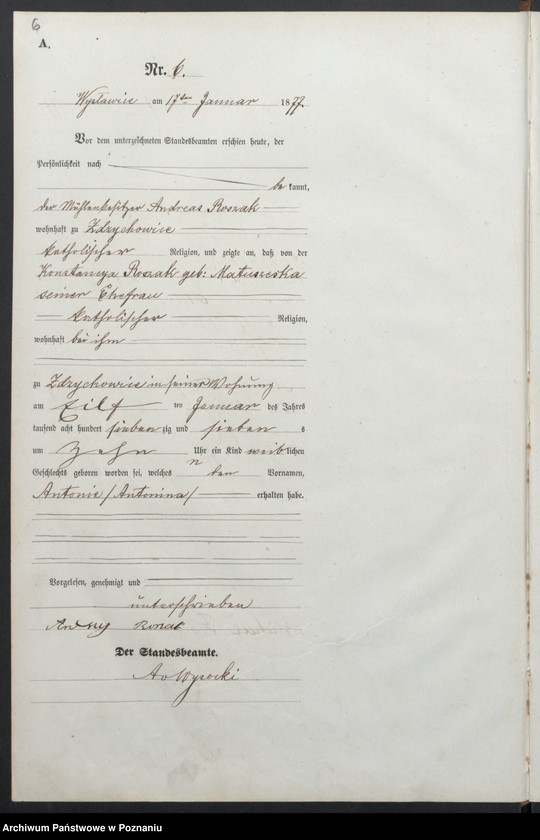 6
A.
Nr. 6.
am 17ten Januar 1877.
Vor dem unterzeichneten Standesbeamten erschien heute, der
Persönlichkeit nach
bekannt,
der Mühlenbesitzer Andreas Roszak
wohnhaft zu Zdzychowice
katholischer Religion, und zeigte an, daß von der
Roszak geb:
seiner Ehefrau
katholischer Religion,
wohnhaft bei ihm
zu Zdzychowice in seiner Wohnung
am Eilf ten Januar des Jahres
tausend acht hundert siebenzig und sieben s
um Zehn Uhr ein Kind weiblichen
Geschlechts geboren worden sei, welches n den Vornamen,
Antonie /Antonina/ erhalten habe.
Vorgelesen, genehmigt und
unterschrieben
Der Standesbeamte.
Archiwum Państwowe w Poznaniu